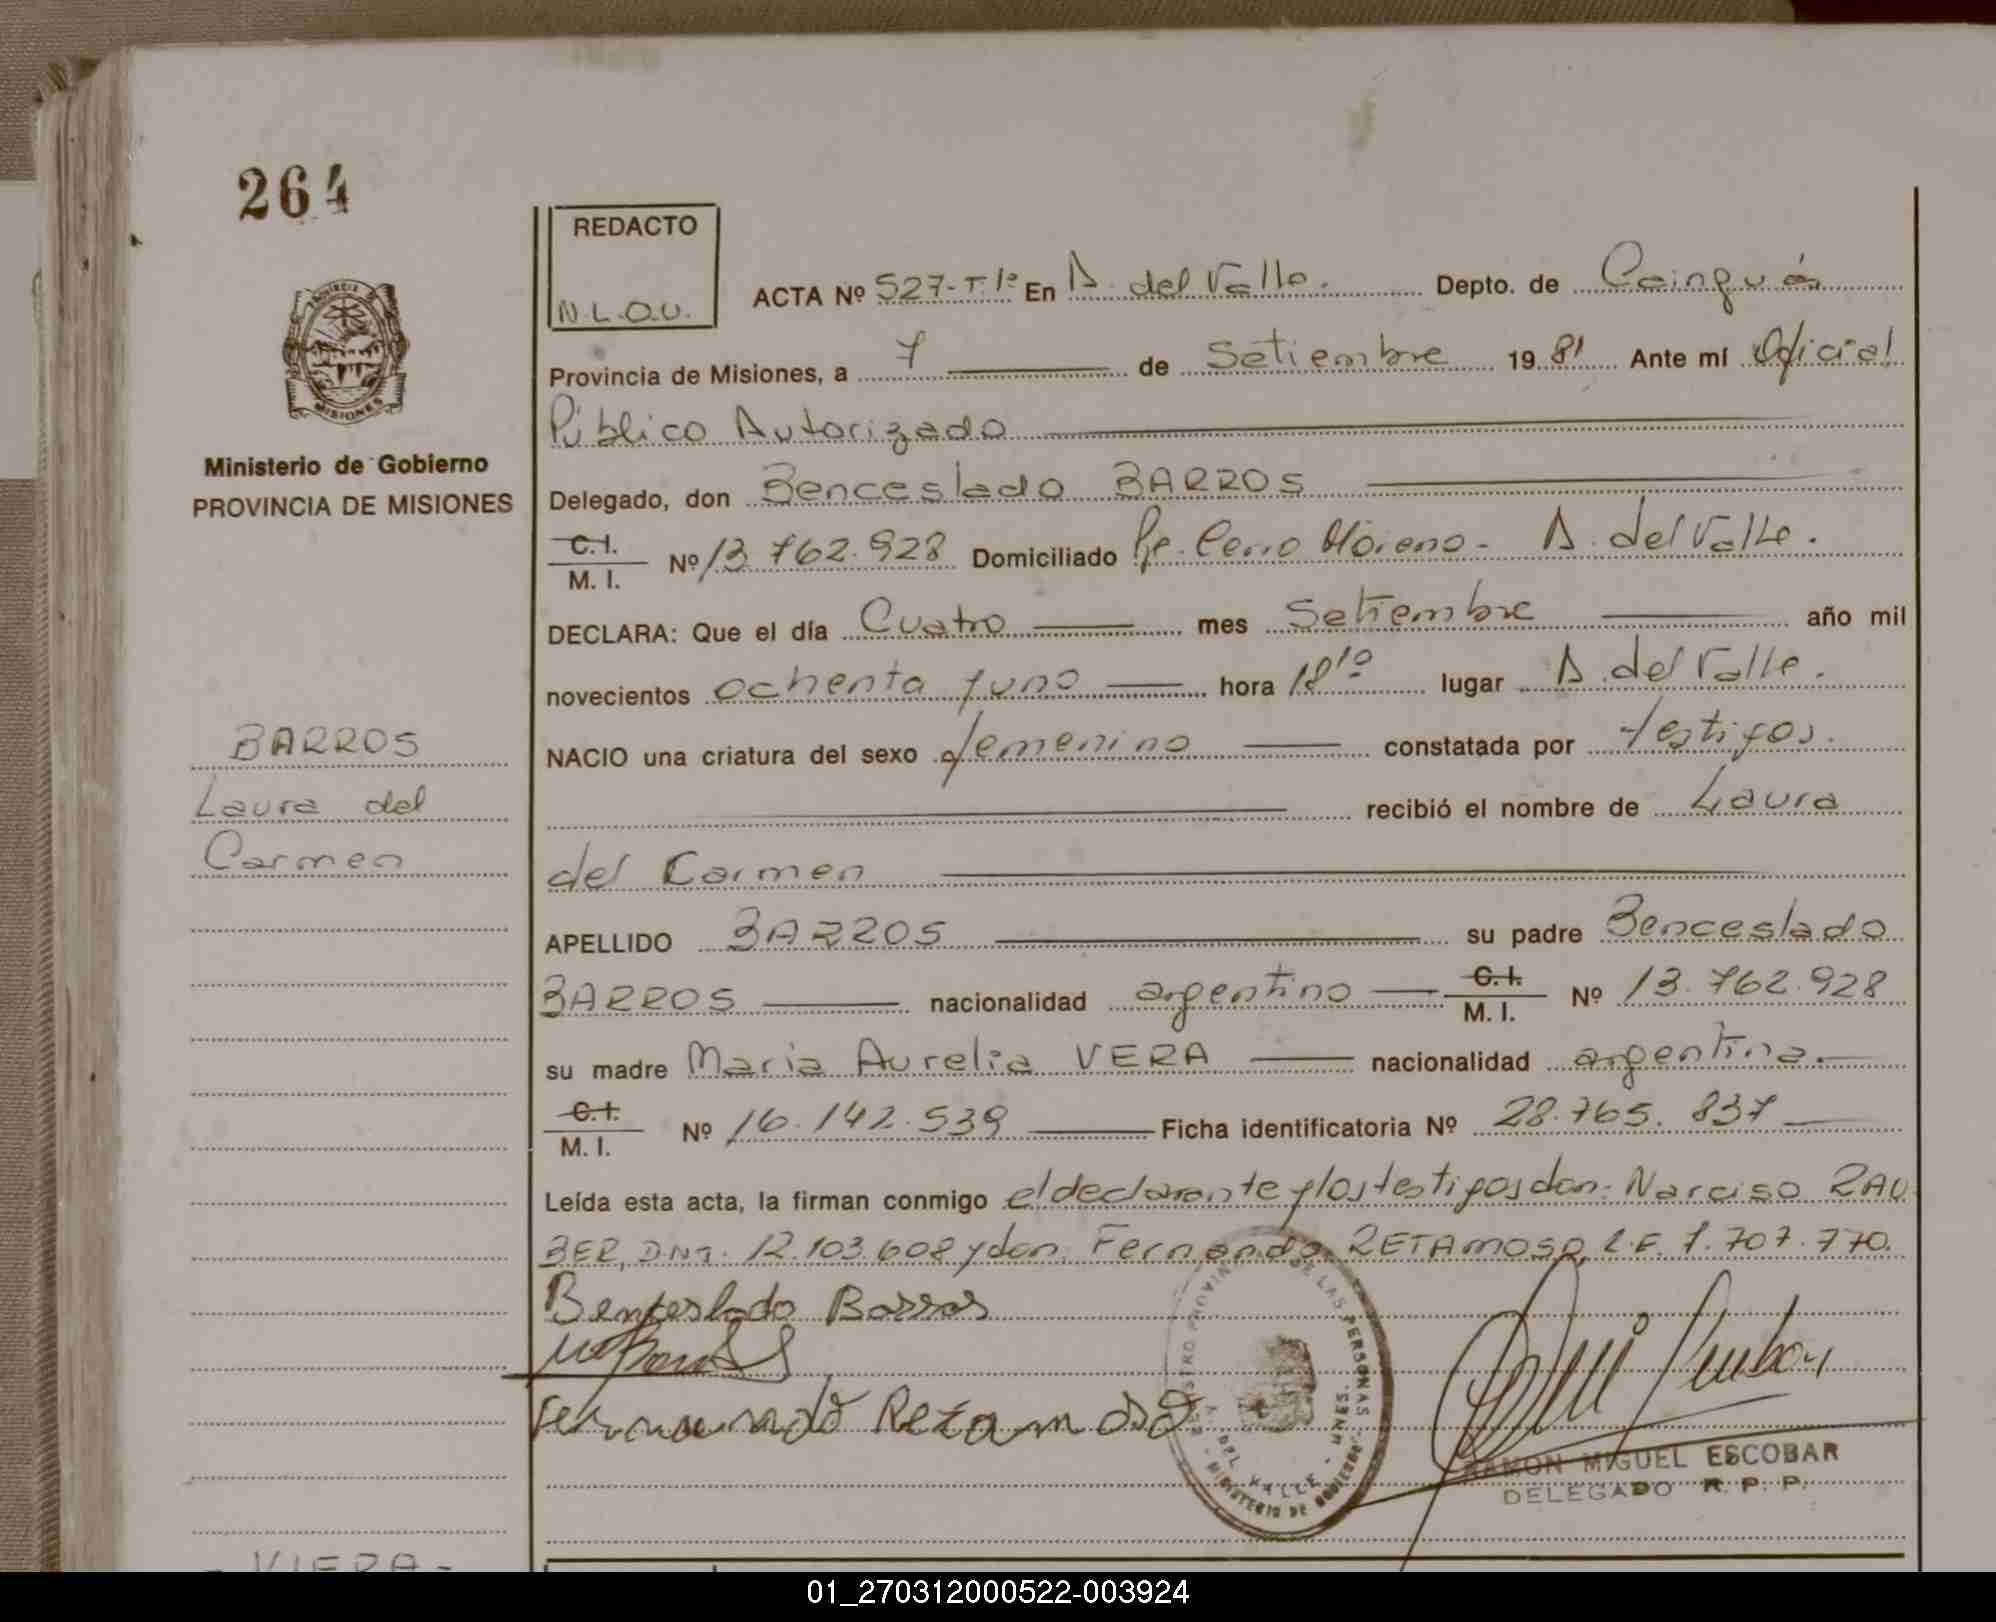 264
REDACTO
N.L.O.U.
ACTA Nº 527-T.1º En A. del Valle. Depto. de Cainguás
Provincia de Misiones, a 7 de Setiembre 1981 Ante mí Oficial
Público Autorizado
Ministerio de Gobierno
PROVINCIA DE MISIONES
Delegado, don Benceslado BARROS
C. I.
M. I. Nº 13.762.928 Domiciliado Pje. Cerro Moreno - A. del Valle.
DECLARA: Que el día Cuatro mes Setiembre año mil
novecientos ochenta y uno hora 18¹⁰ lugar A. del Valle.
NACIO una criatura del sexo femenino constatada por testigos.
recibió el nombre de Laura
del Carmen
BARROS
Laura del
Carmen
APELLIDO BARROS su padre Benceslado
BARROS nacionalidad argentino C. I. M. I. Nº 13.762.928
su madre Maria Aurelia VERA nacionalidad argentina.
C. I.
M. I. Nº 16.142.539 Ficha identificatoria Nº 28.765.837
Leída esta acta, la firman conmigo el declarante y los testigos don: Narciso RAU
BER, D.N.I. 12.103.608 y don. Fernando RETAMOSO, L.E. 7.707.770.
Benseslado Barros
Fernando Retamoso
REGISTRO PROVINCIAL DE LAS PERSONAS
A. DEL VALLE - MNES.
MINISTERIO DE GOBIERNO
RAMON MIGUEL ESCOBAR
DELEGADO R. P. P.
- VIERA -
01_270312000522-003924